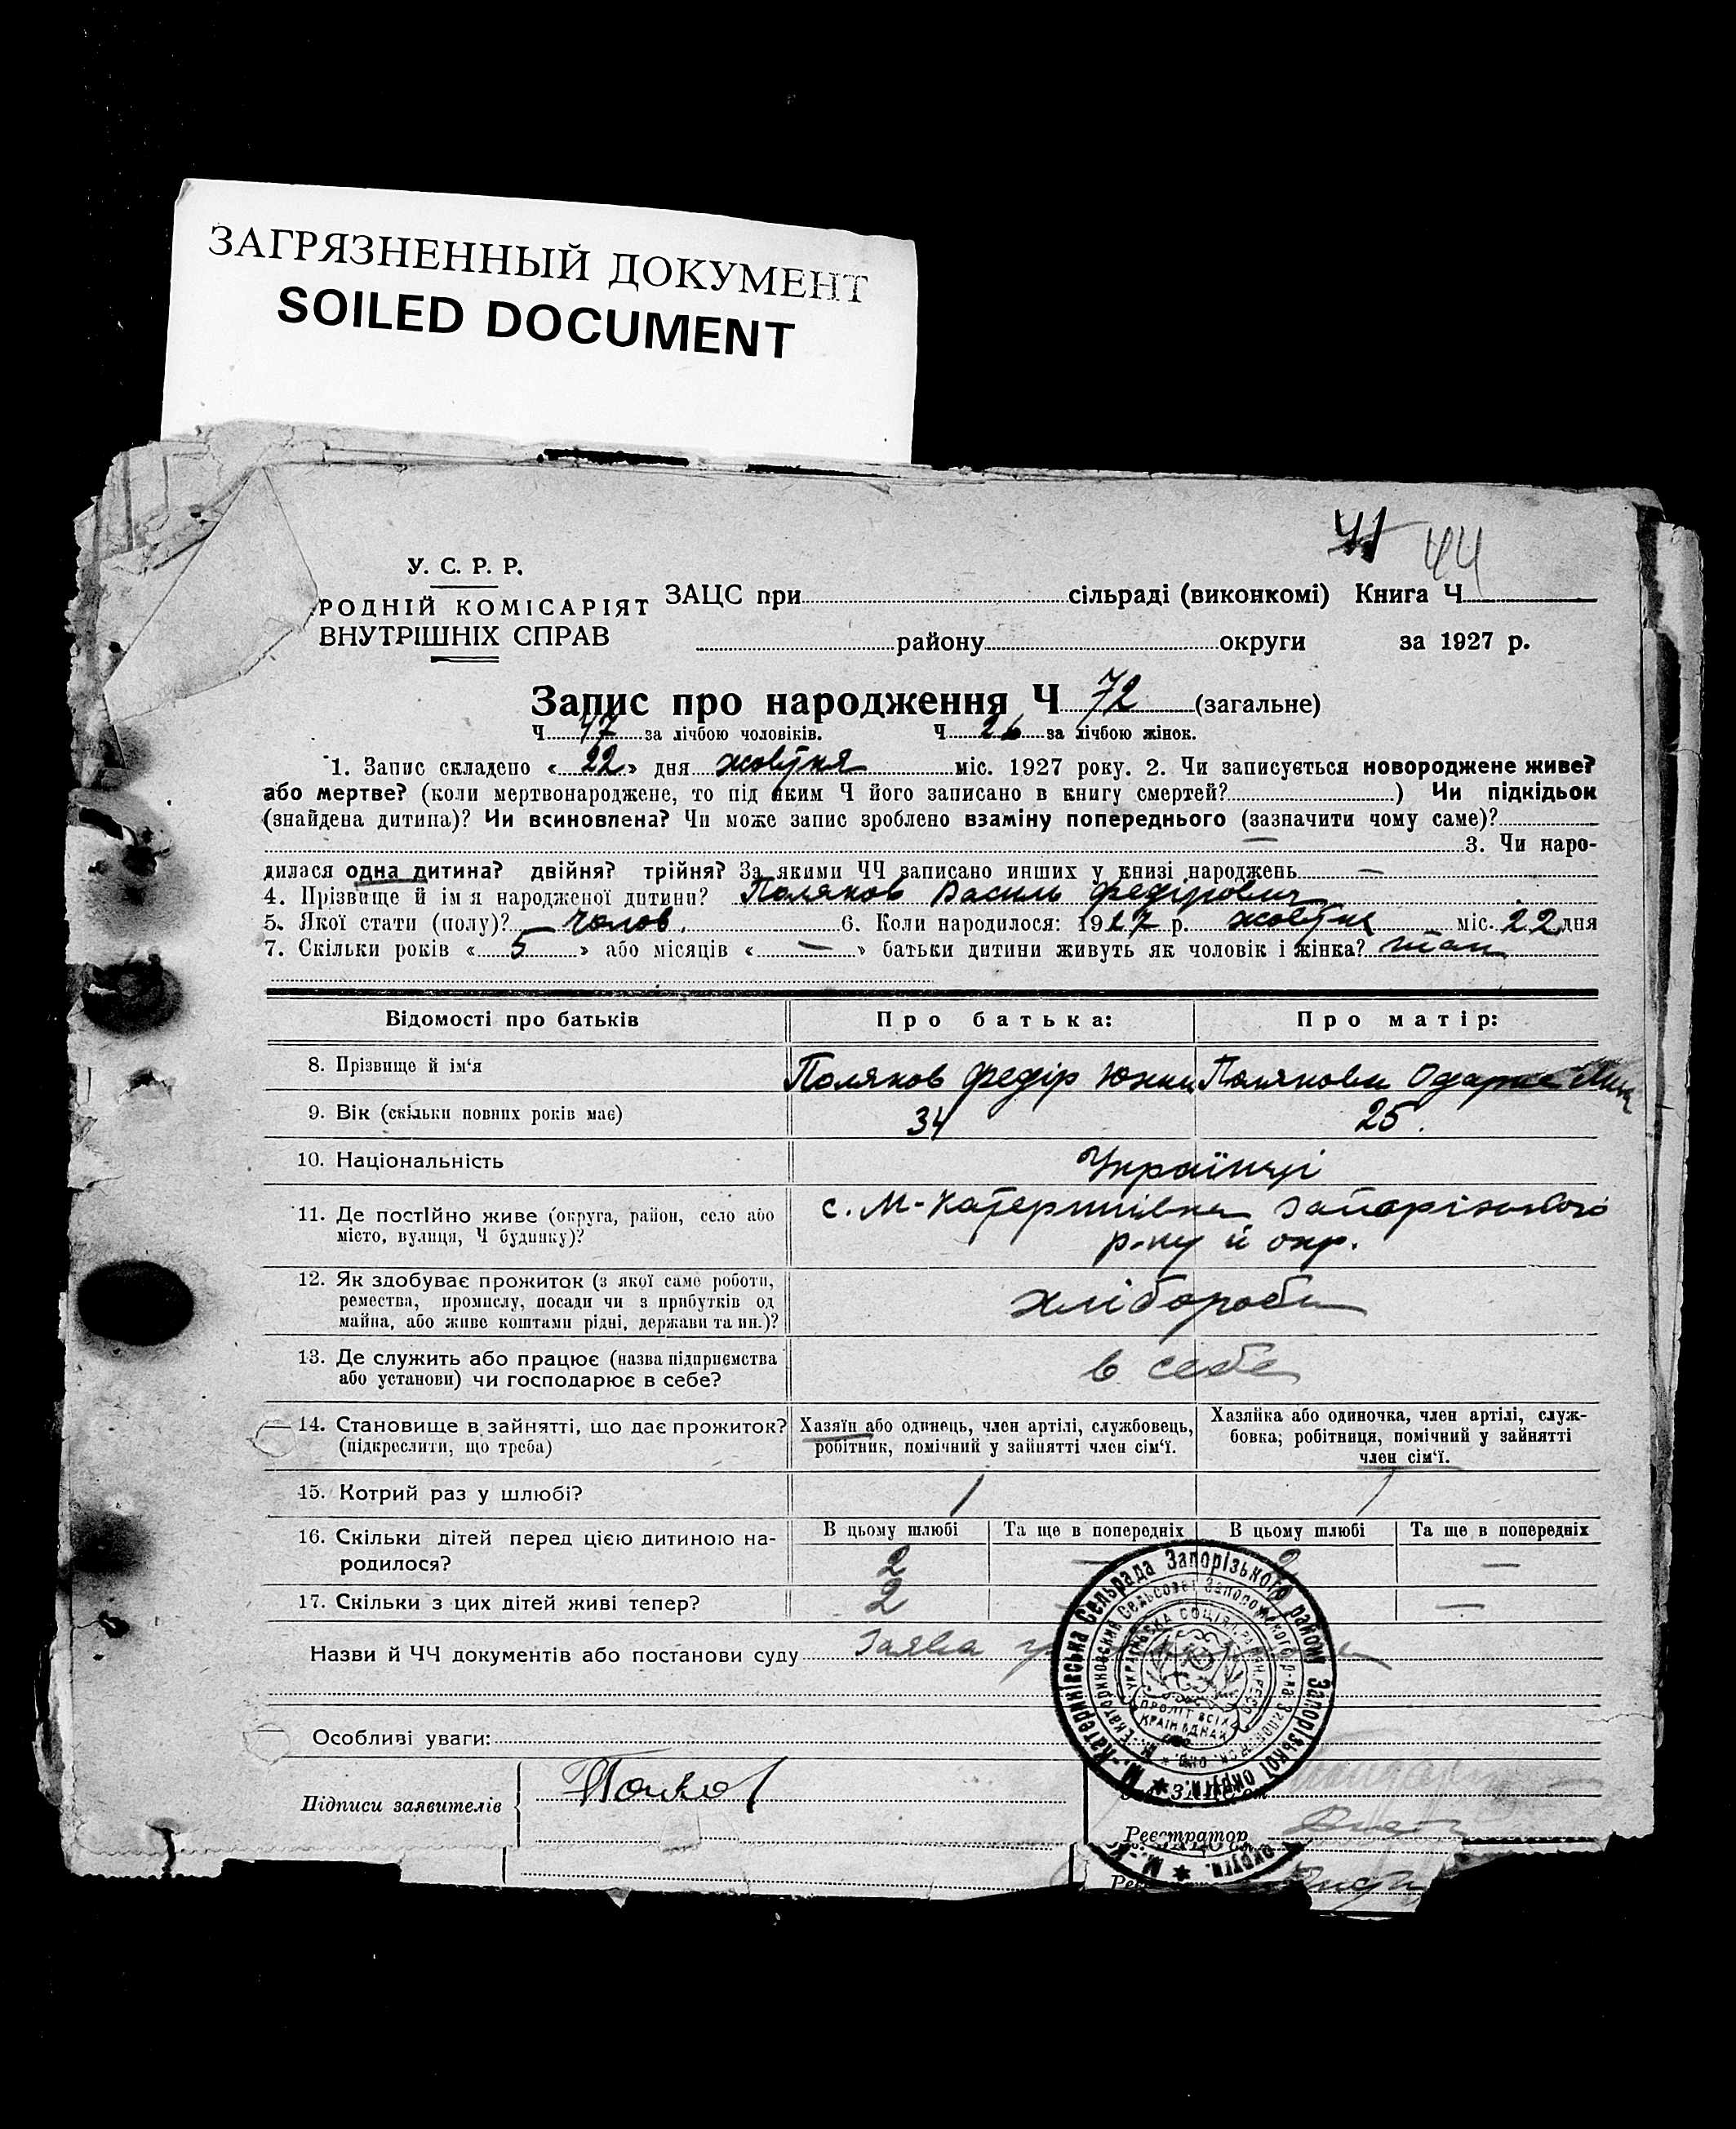 ЗАГРЯЗНЕННЫЙ ДОКУМЕНТ
SOILED DOCUMENT
41 44
У. С. Р. Р.
РОДНІЙ КОМІСАРІЯТ
ВНУТРІШНІХ СПРАВ
ЗАЦС при сільраді (виконкомі) Книга Ч
району округи за 1927 р.
Запис про народження Ч 72 (загальне)
Ч 47 за лічбою чоловіків. Ч 26 за лічбою жінок.
1. Запис складено « 22 » дня жовтня міс. 1927 року. 2. Чи записується новороджене живе?
або мертве? (коли мертвонароджене, то під яким Ч його записано в книгу смертей? ) Чи підкідьок
(знайдена дитина)? Чи всиновлена? Чи може запис зроблено взаміну попереднього (зазначити чому саме)?
— 3. Чи наро-
дилася одна дитина? двійня? трійня? За якими ЧЧ записано инших у книзі народжень —
4. Прізвище й ім я народженої дитини? Поляков Василь Федірович
5. Якої стати (полу)? чолов. 6. Коли народилося: 1927 р. жовтня міс. 22 дня
7. Скільки років « 5 » або місяців « — » батьки дитини живуть як чоловік і жінка? так
Відомості про батьків Про батька: Про матір:
8. Прізвище й ім'я Поляков Федір Полякова Одарка
9. Вік (скільки повних років має) 34 25.
10. Національність Українці
11. Де постійно живе (округа, район, село або
місто, вулиця, Ч будинку)?
с. М-Катеринівка Запорізького
р-ну й окр.
12. Як здобуває прожиток (з якої саме роботи,
ремества, промислу, посади чи з прибутків од
майна, або живе коштами рідні, держави та ин.)?
хлібороби
13. Де служить або працює (назва підприємства
або установи) чи господарює в себе?
в себе
14. Становище в зайнятті, що дає прожиток?
(підкреслити, що треба)
Хазяїн або одинець, член артілі, службовець,
робітник, помічний у зайнятті член сім'ї.
Хазяйка або одиночка, член артілі, служ-
бовка; робітниця, помічний у зайнятті
член сім'ї.
15. Котрий раз у шлюбі? 1 1
16. Скільки дітей перед цією дитиною на-
родилося?
В цьому шлюбі Та ще в попередніх В цьому шлюбі Та ще в попередніх
2 — 2 —
17. Скільки з цих дітей живі тепер? 2 —
Назви й ЧЧ документів або постанови суду Заява
Особливі уваги:
Підписи заявителів
М.-Катеринівська Сельрада Запорізького району Запорізької округи.
М.-Екатериновский Сельсовет Запорожского р-на Запорожск. окр.
Реєстратор